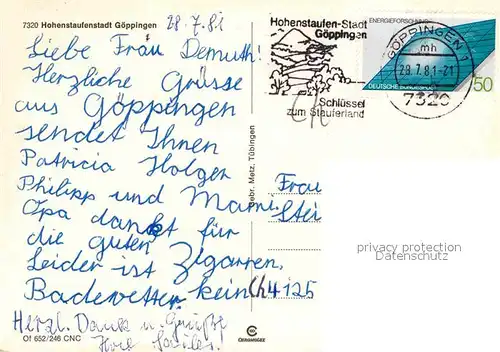 7320 Hohenstaufenstadt Göppingen
28.7.81
Liebe Frau Demuth!
Herzliche Grüsse
aus Göppingen
sendet Ihnen
Patricia Holger
Philipp und Mami.
Opa dankt für
die guten Zigarren,
Leider ist
Badewetter kein
Herzl. Dank u.
Of 652/246 CNC
CHROMOLUX
Gebr. Metz, Tübingen
Hohenstaufen-Stadt
Göppingen
Schlüssel
zum Stauferland
ENERGIEFORSCHUNG
DEUTSCHE BUNDESPOST
50
GÖPPINGEN 1
mh
28.7.81-21
7320
Frau
Ch 4125
privacy protection
Datenschutz